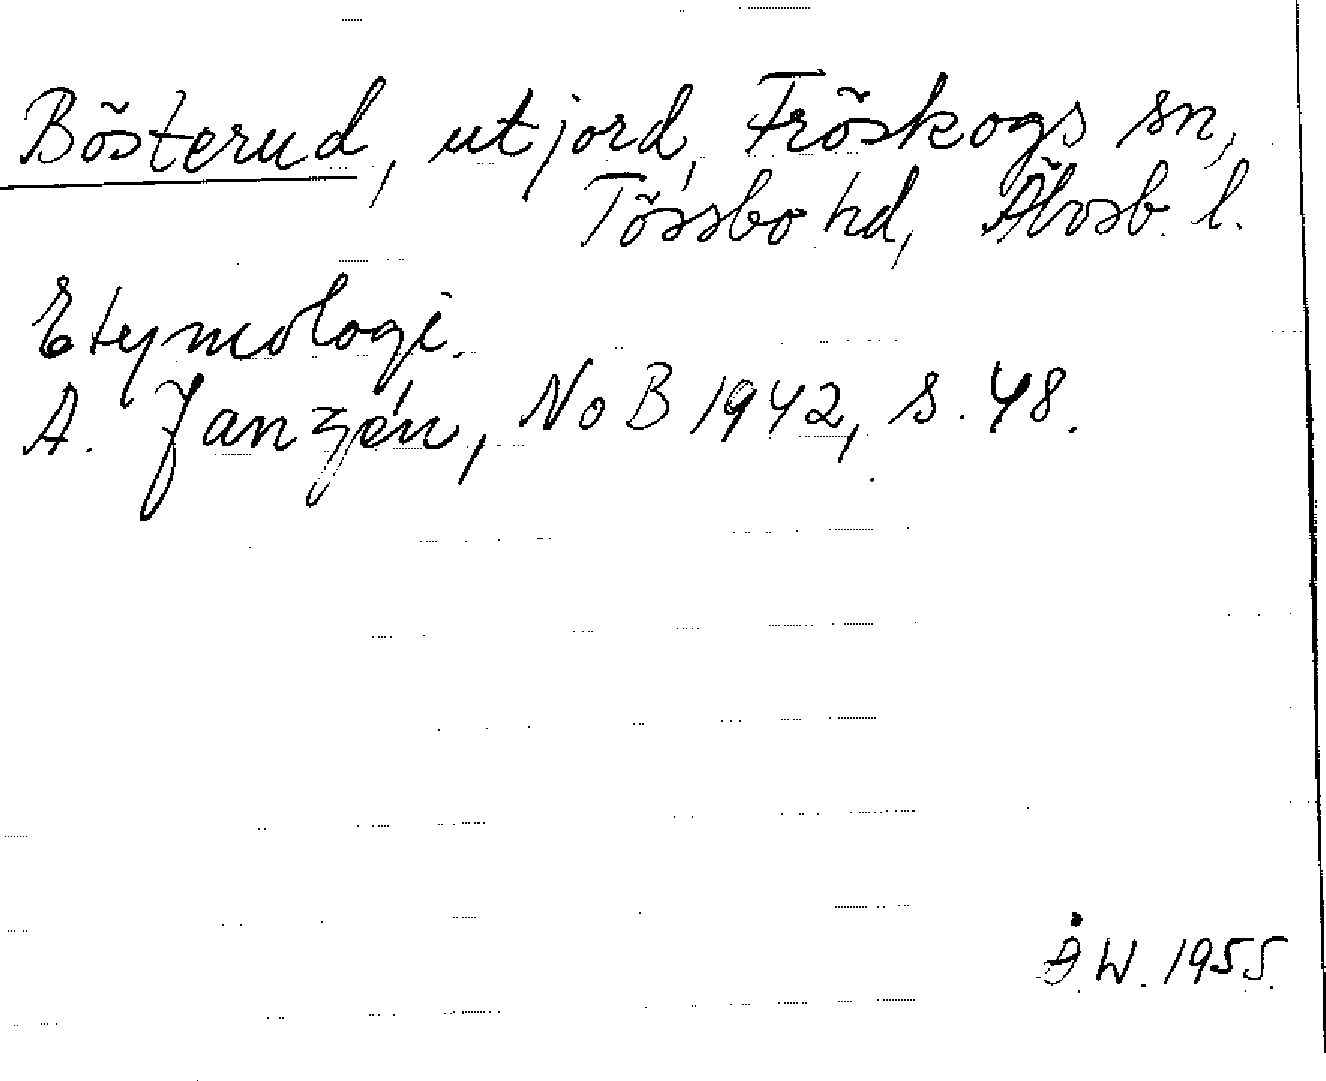 Bösterud, utjord, Fröskogs sn,
Tössbo hd, Älvsb. l.
Etymologi.
A. Janzén, NoB 1942, s. 48.
Å.W. 1955.